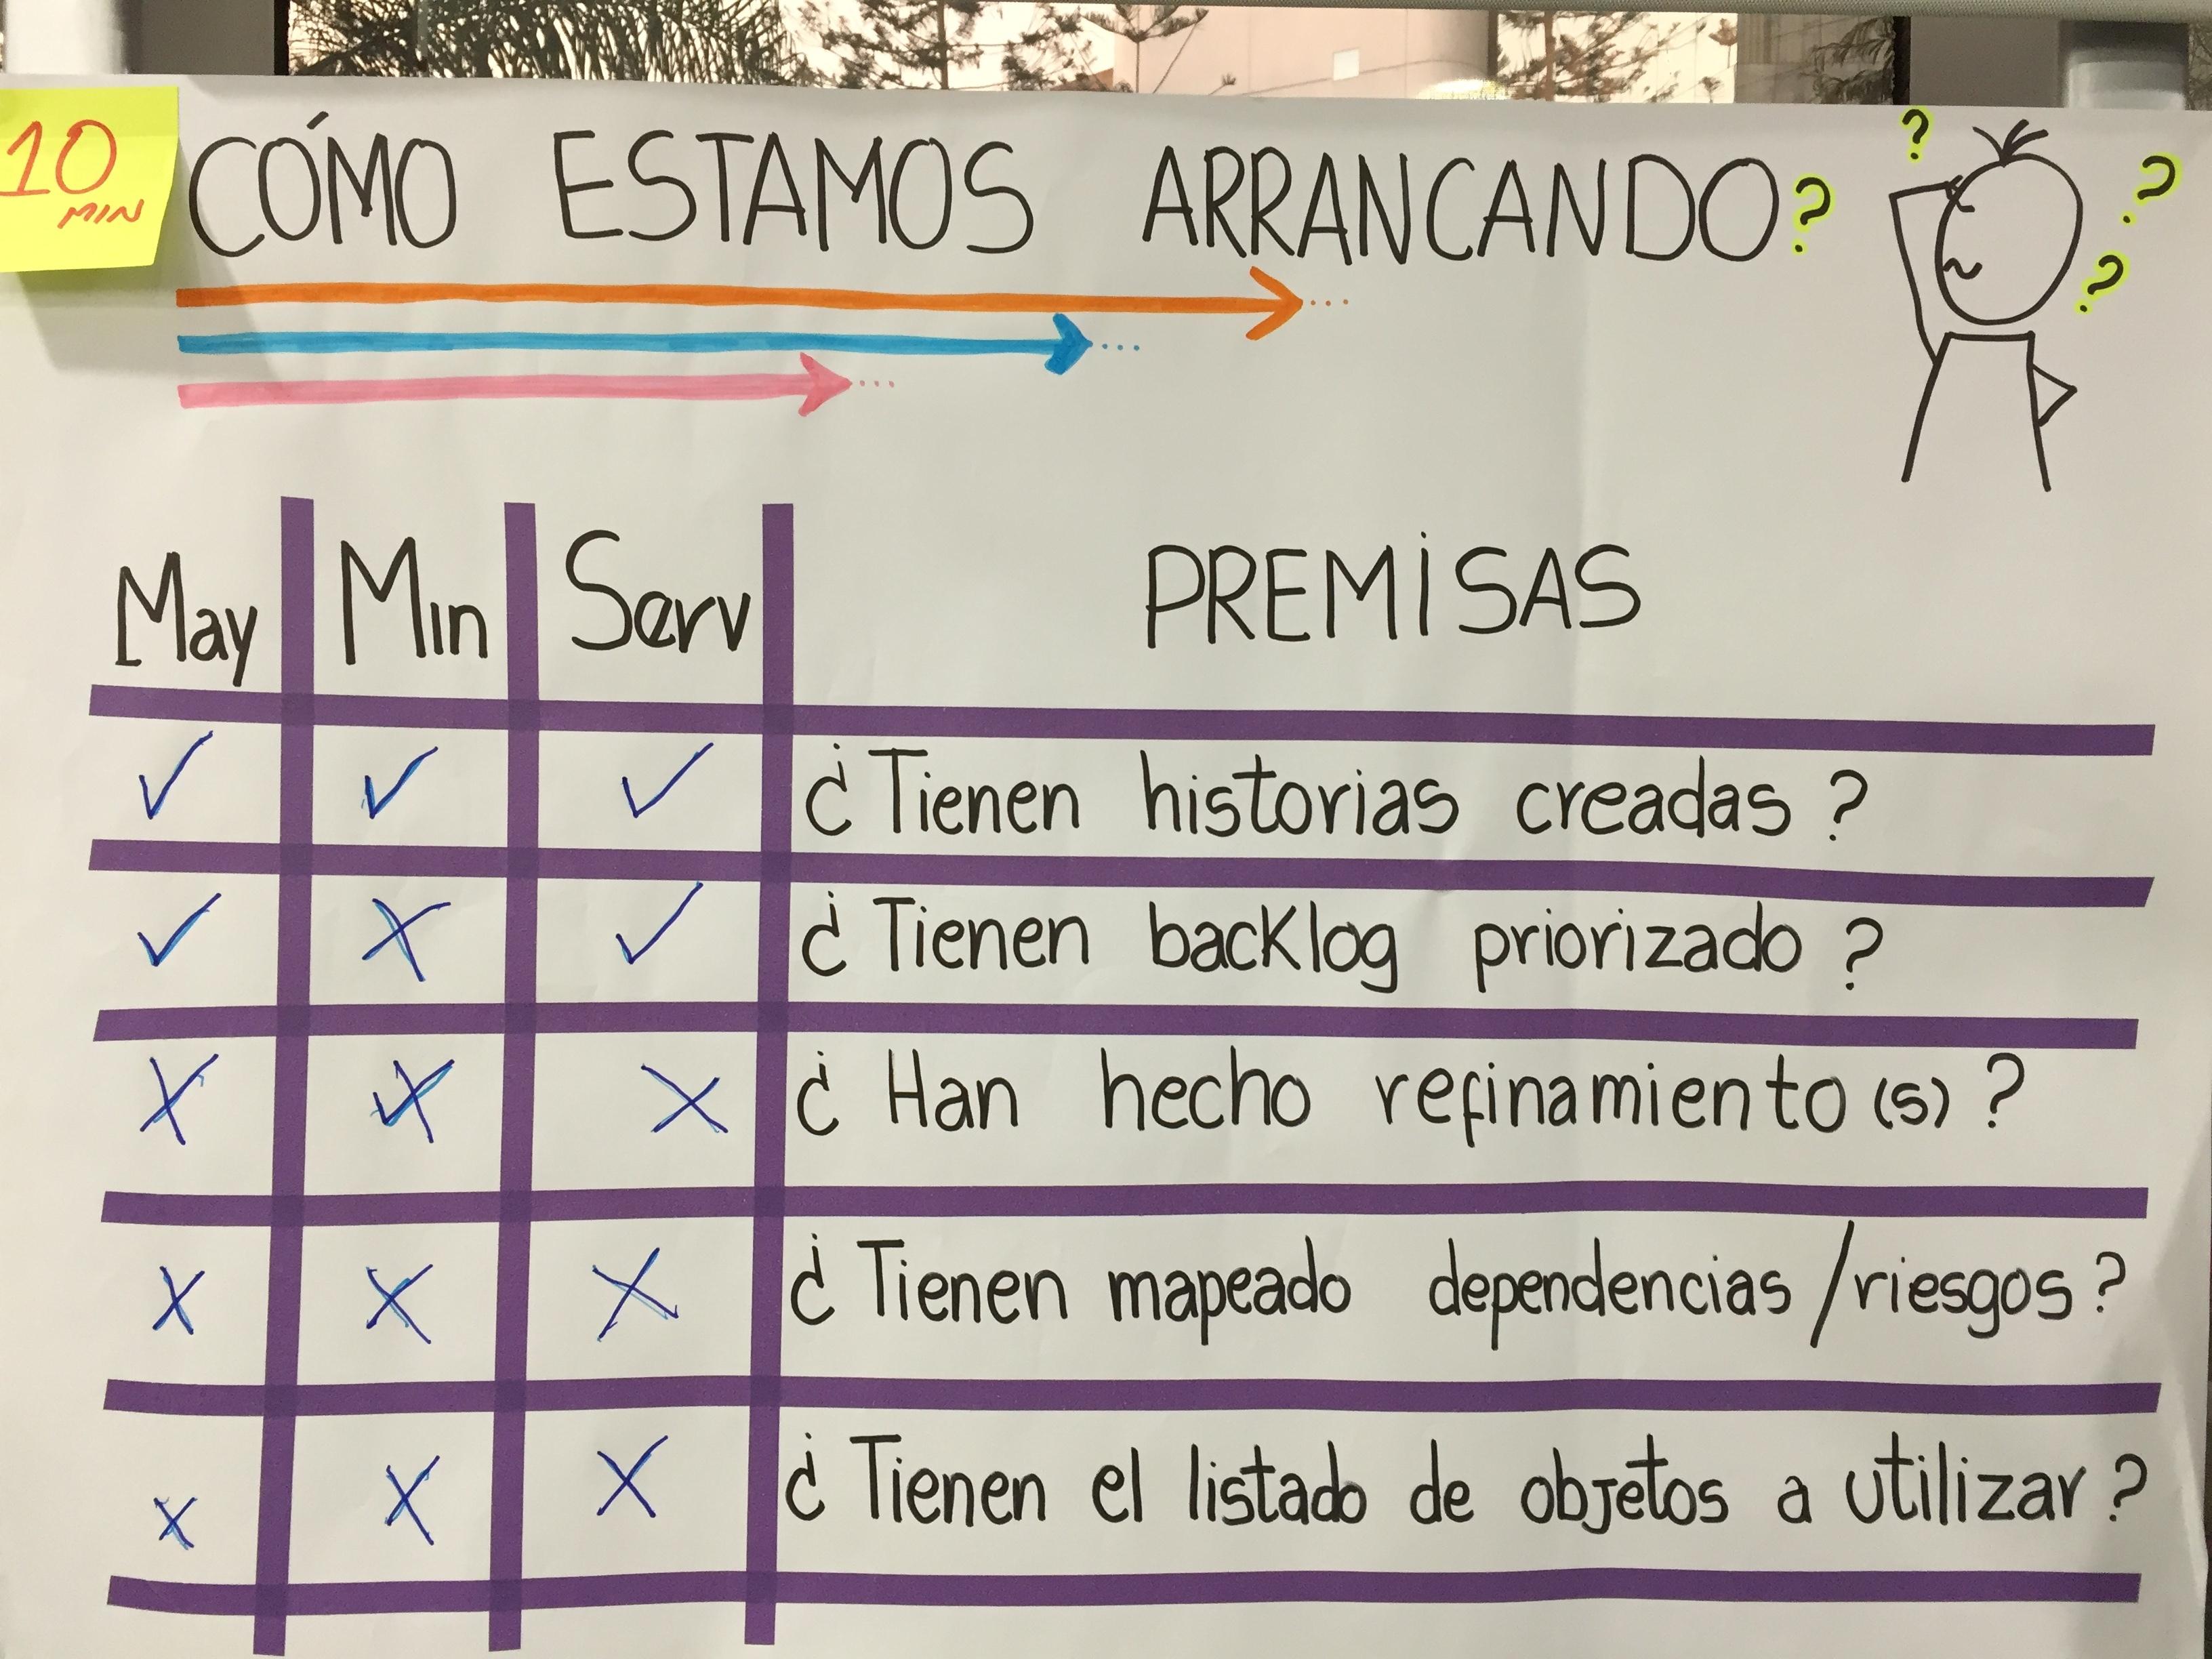 10
MIN
CÓMO ESTAMOS ARRANCANDO?
? ? ?
May Min Serv PREMISAS
✓ ✓ ✓ ¿Tienen historias creadas?
✓ X ✓ ¿Tienen backlog priorizado?
X X X ¿Han hecho refinamiento(s)?
X X X ¿Tienen mapeado dependencias/riesgos?
X X X ¿Tienen el listado de objetos a utilizar?